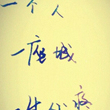 一个人
一座城
一生心疼